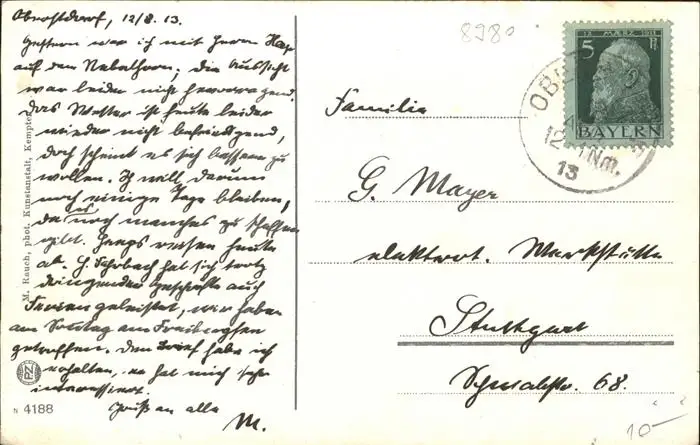 Oberstdorf, 12/8. 13.
Gestern war ich mit Herrn
auf dem Nebelhorn; die Aussicht
war leider nicht hervorragend.
Das Wetter ist heute leider
wieder nicht befriedigend,
doch scheint es sich bessern zu
wollen. Ich will darum
noch einige Tage bleiben,
da es noch manches zu schaffen
gibt. reisen heute
ab. H. hat sich trotz
dringender Geschäfte auch
Ferien geleistet, wir haben
am Sonntag am
getroffen. Den Brief habe ich
erhalten, er hat mich sehr
interessiert.
Gruß an alle
M.
M. Rauch, phot. Kunstanstalt, Kempten
PZ
N 4188
8980
5 12. MÄRZ 1911 Pf
BAYERN
OBE
12
Nm.
13
Familie
G. Mayer
elektrot. Werkstätte
Stuttgart
Schwabstr. 68.
10-